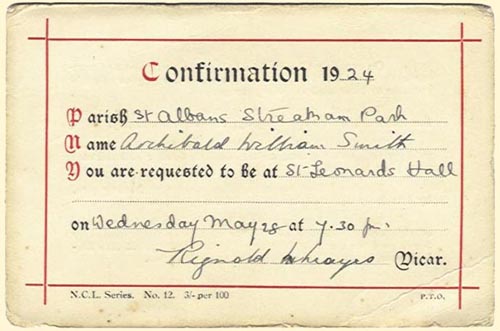 Confirmation 1924
Parish St Albans Streatham Park
Name Archibald William Smith
You are requested to be at St Leonards Hall
on Wednesday May 28 at 7.30 p.
Vicar.
N.C.L. Series. No. 12. 3/- per 100 P.T.O.